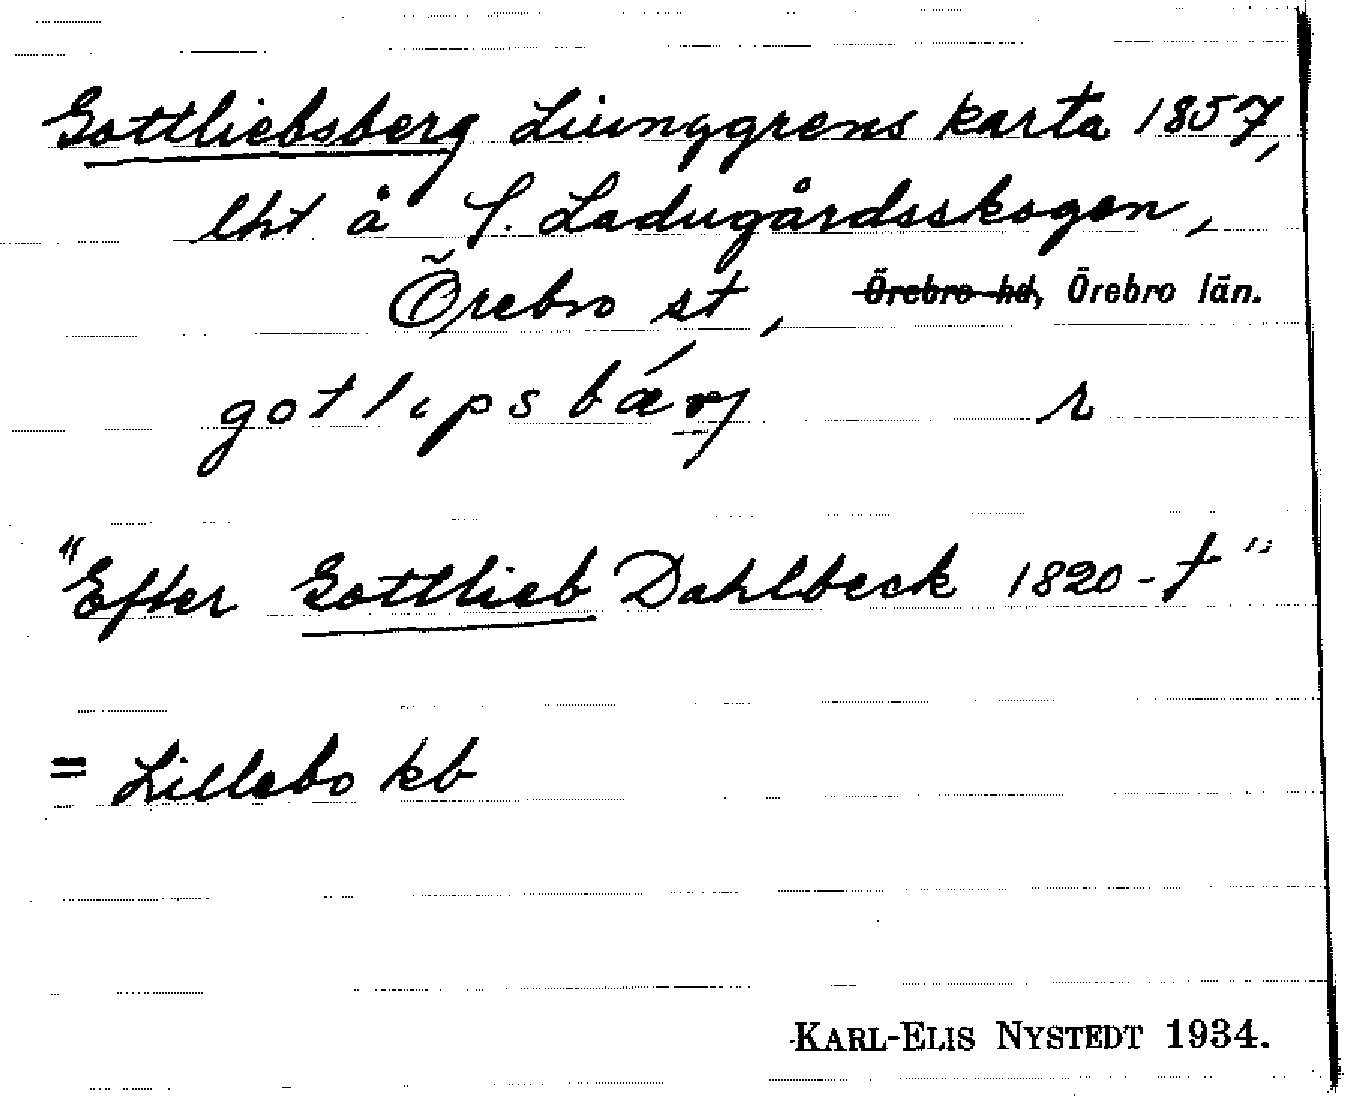 Gottliebsberg Liunggrens karta 1857,
lht å S. Ladugårdsskogen,
Örebro st, Örebro hd, Örebro län.
gotlipsbǽrj r
"Efter Gottlieb Dahlbeck 1820-t"
= Lillebo kb
KARL-ELIS NYSTEDT 1934.